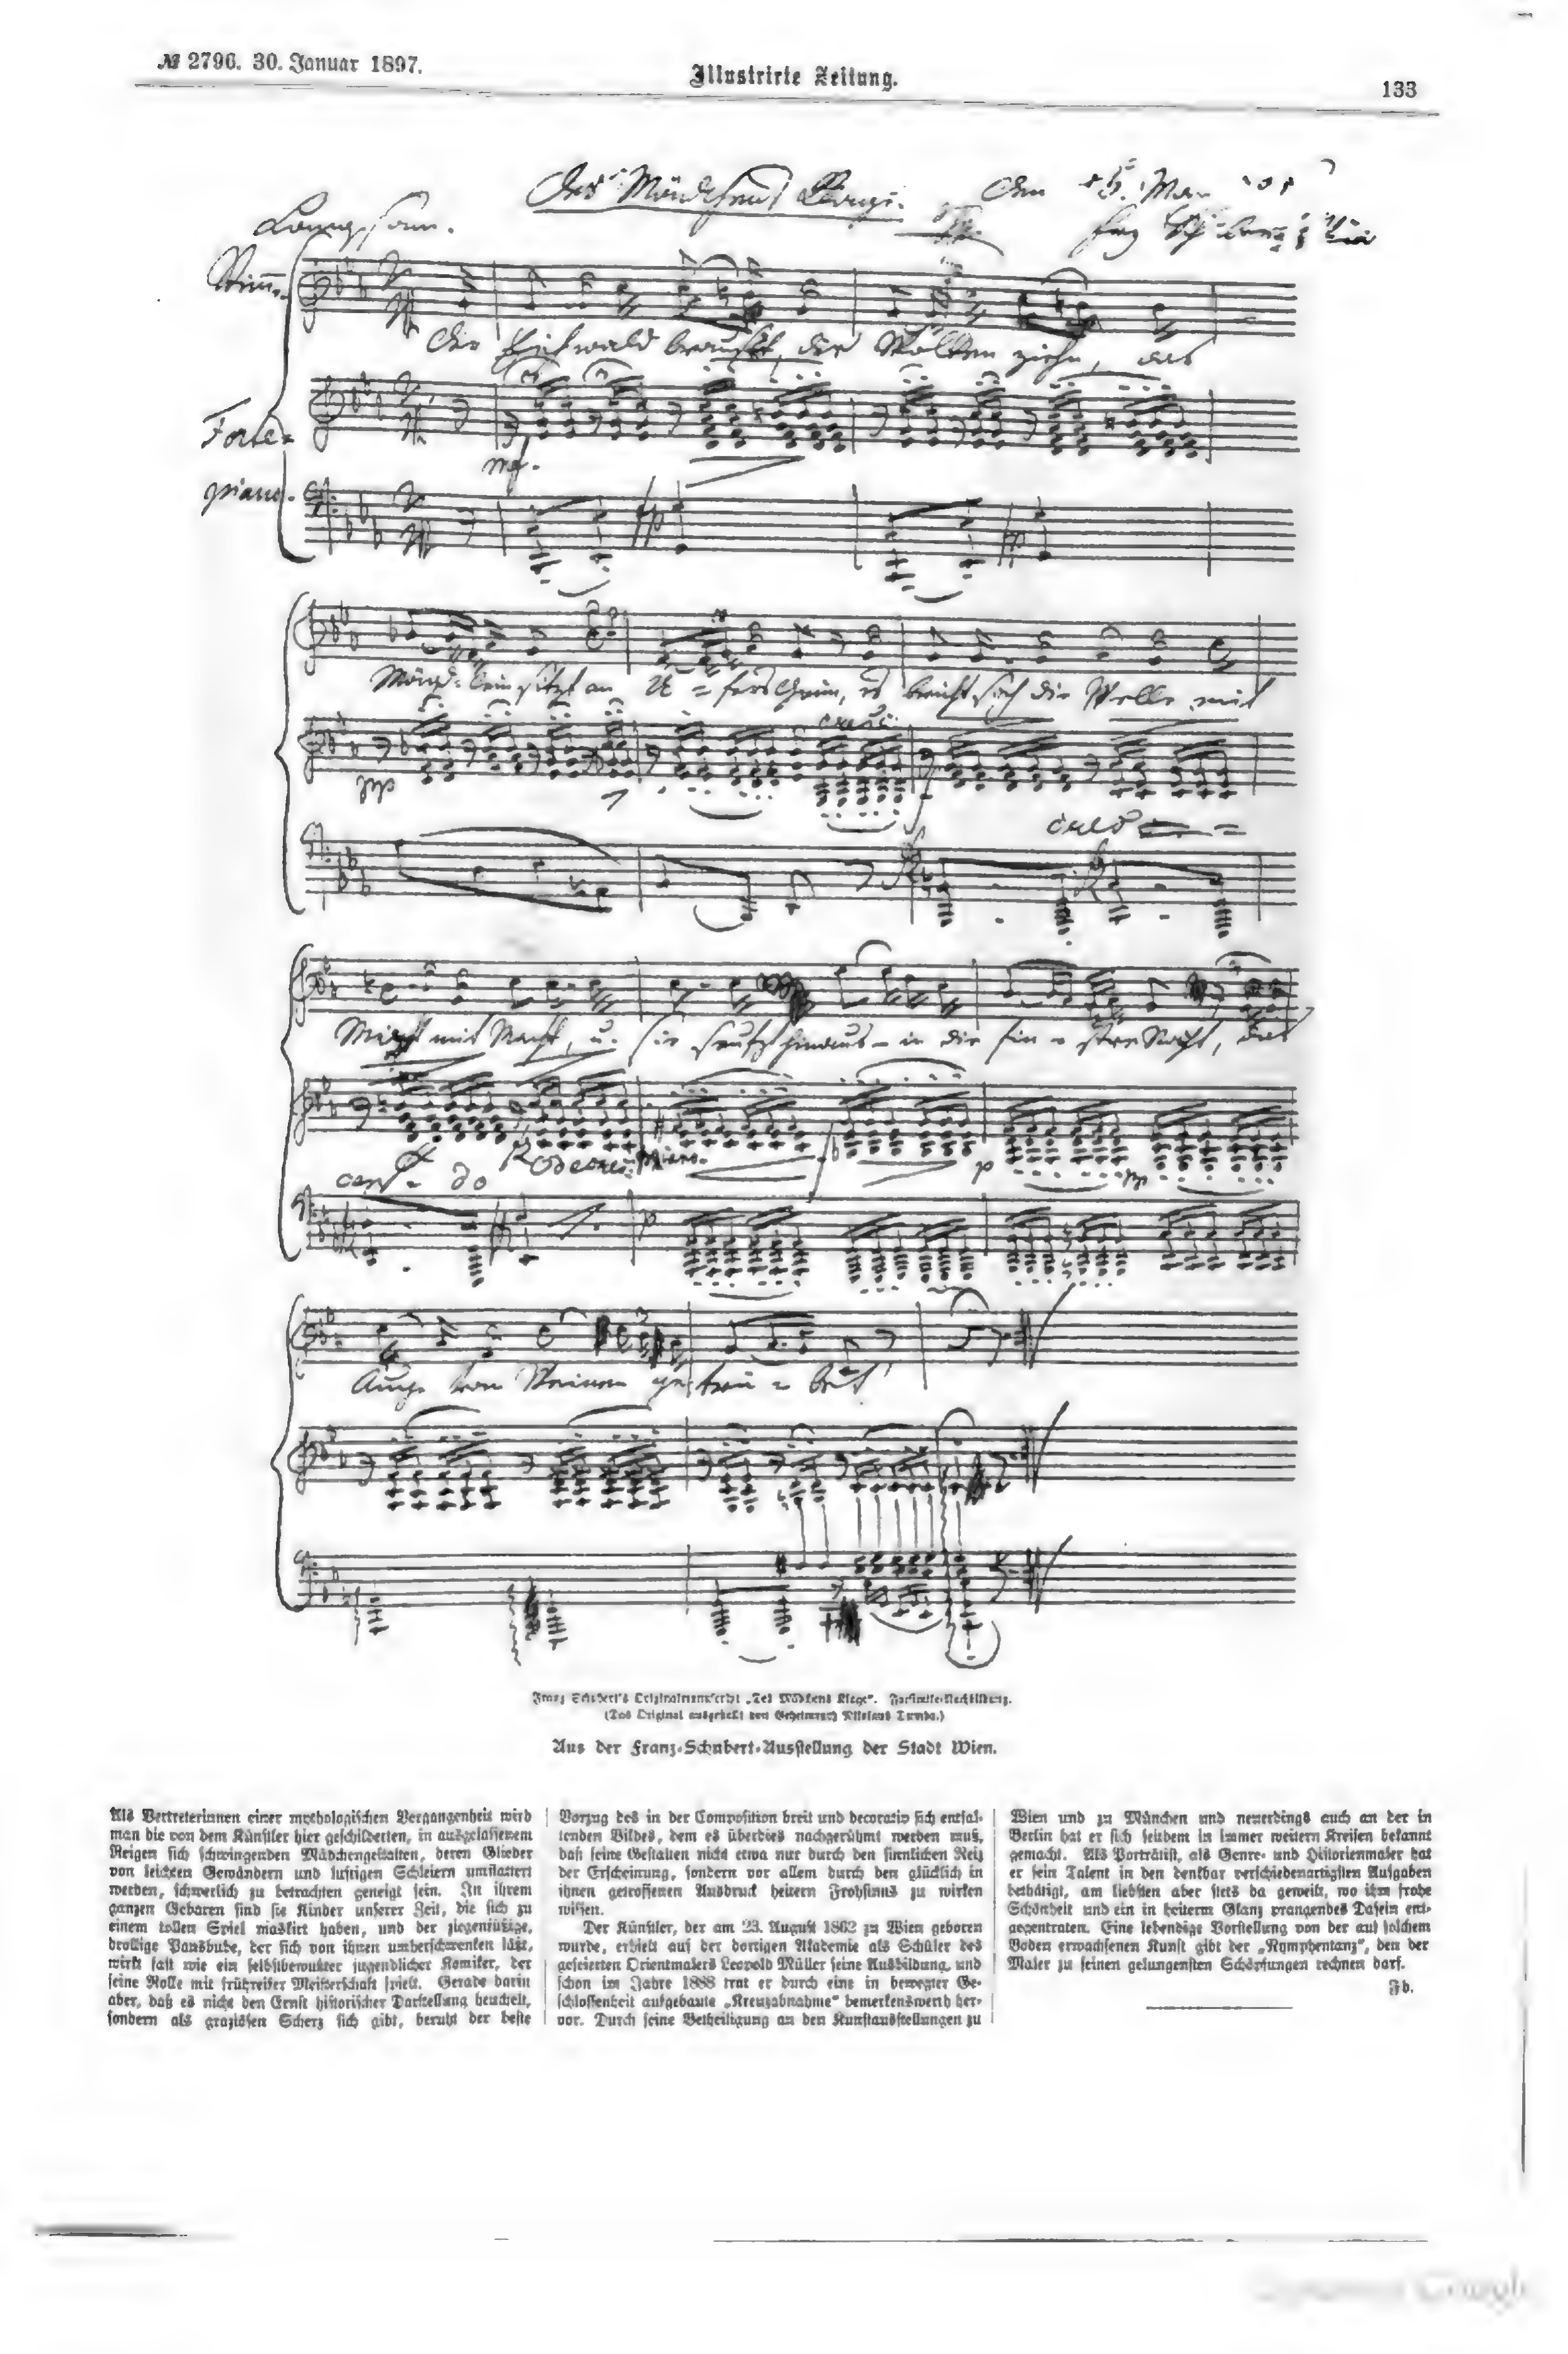 № 2796. 30. Januar 1897.
Illustrirte Zeitung.
133
Des Mädchens Klage. Den Mai
Langsam.
Stimme.
Der Eichwald brauset, die Wolken ziehn, das
Forte=
mf.
piano.
Mägdlein sitzt an U = fers Grün, es bricht sich die Welle mit
cresc.
pp
cresc
Macht mit Macht, u. sie seufzt hinaus in die fin = stre Nacht, das
decresc.
cen = do
p
Auge von Weinen getrü = bet
Franz Schubert's Originalmanuscript „Des Mädchens Klage“. Facsimile-Nachbildung.
(Das Original ausgestellt von Geheimrath Nikolaus Dumba.)
Aus der Franz-Schubert-Ausstellung der Stadt Wien.
Als Vertreterinnen einer mythologischen Vergangenheit wird
man die von dem Künstler hier geschilderten, in ausgelassenem
Reigen sich schwingenden Mädchengestalten, deren Glieder
von leichten Gewändern und luftigen Schleiern umflattert
werden, schwerlich zu betrachten geneigt sein. In ihrem
ganzen Gebaren sind sie Kinder unserer Zeit, die sich zu
einem tollen Spiel maskirt haben, und der ziegenfüßige,
drollige Pansbube, der sich von ihnen umherschwenken läßt,
wirkt fast wie ein selbstbewußter jugendlicher Komiker, der
seine Rolle mit frühreifer Meisterschaft spielt. Gerade darin
aber, daß es nicht den Ernst historischer Darstellung heuchelt,
sondern als graziösen Scherz sich gibt, beruht der beste
Vorzug des in der Composition breit und decorativ sich entfal-
tenden Bildes, dem es überdies nachgerühmt werden muß,
daß seine Gestalten nicht etwa nur durch den sinnlichen Reiz
der Erscheinung, sondern vor allem durch den glücklich in
ihnen getroffenen Ausdruck heitern Frohsinns zu wirken
wissen.
Der Künstler, der am 23. August 1862 zu Wien geboren
wurde, erhielt auf der dortigen Akademie als Schüler des
gefeierten Orientmalers Leopold Müller seine Ausbildung, und
schon im Jahre 1888 trat er durch eine in bewegter Ge-
schlossenheit aufgebaute „Kreuzabnahme“ bemerkenswerth her-
vor. Durch seine Betheiligung an den Kunstausstellungen zu
Wien und zu München und neuerdings auch an der in
Berlin hat er sich seitdem in immer weitern Kreisen bekannt
gemacht. Als Porträtist, als Genre- und Historienmaler hat
er sein Talent in den denkbar verschiedenartigsten Aufgaben
bethätigt, am liebsten aber stets da geweilt, wo ihm frohe
Schönheit und ein in heiterm Glanz prangendes Dasein ent-
gegentraten. Eine lebendige Vorstellung von der auf solchem
Boden erwachsenen Kunst gibt der „Nymphentanz“, den der
Maler zu seinen gelungensten Schöpfungen rechnen darf.
Fb.
Google